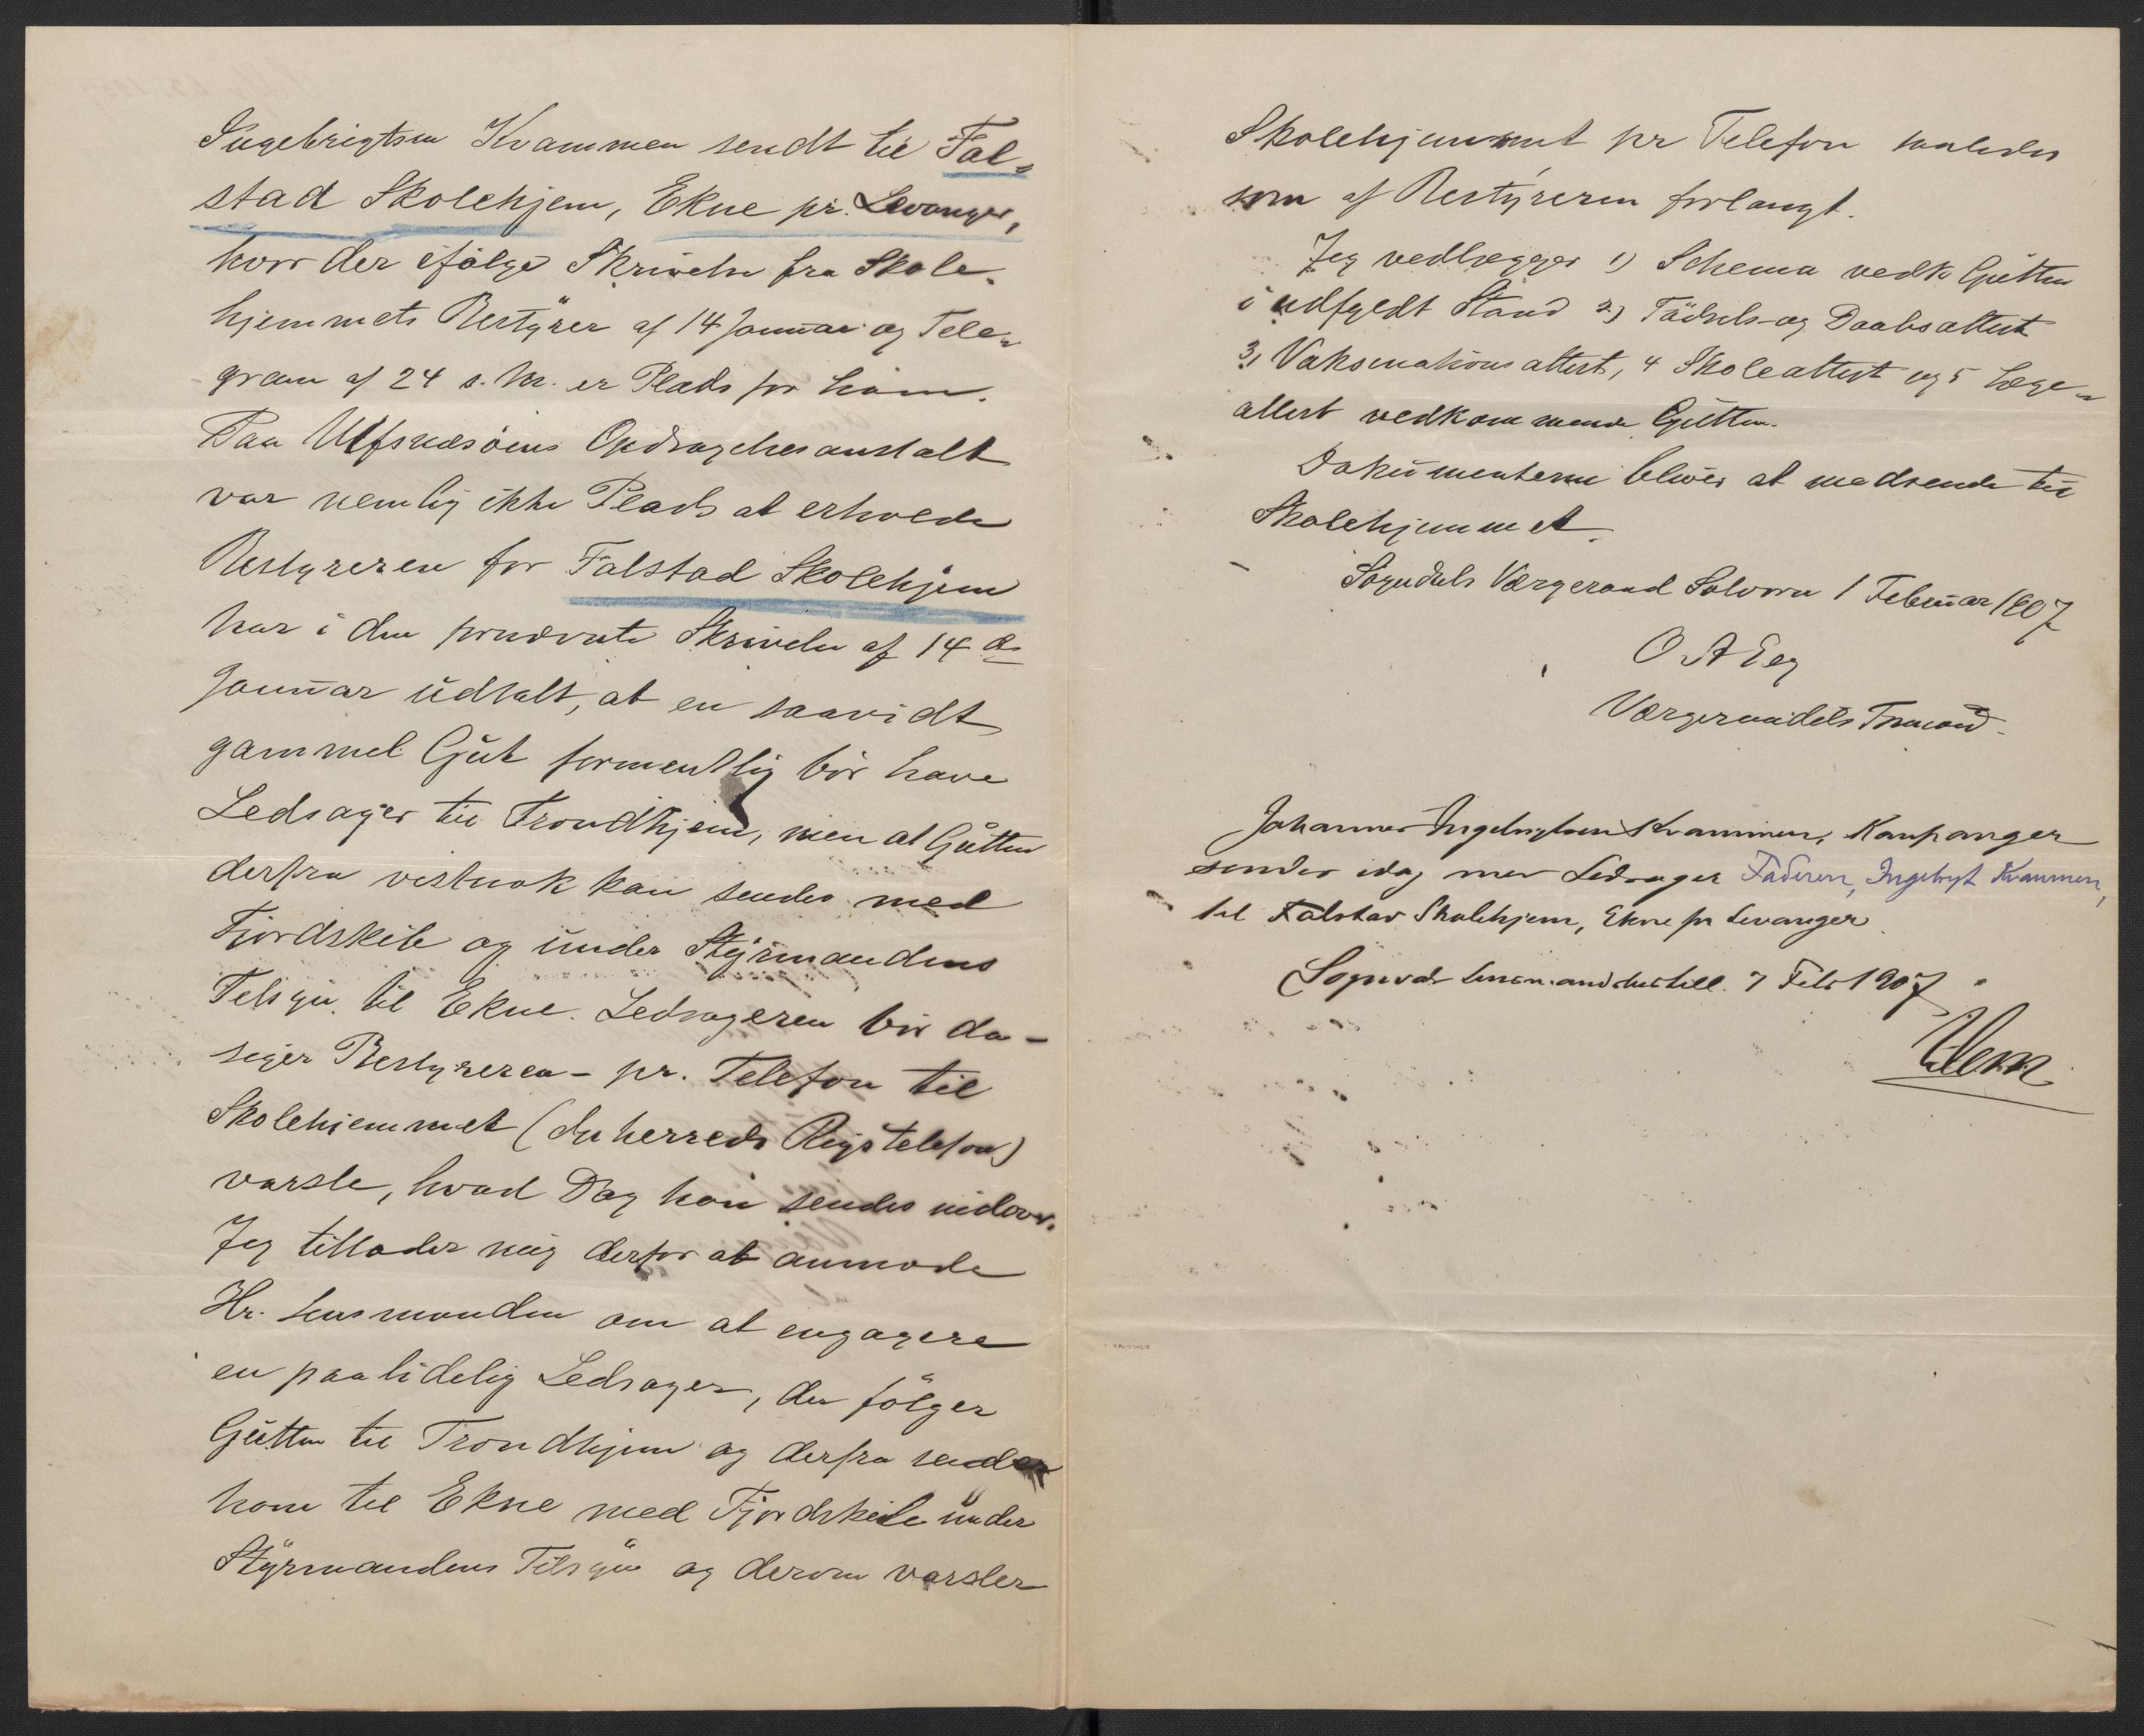 Ingebrigtsen Kvammen sendt til Fal-
stad Skolehjem, Ekne pr. Levanger,
hvor der ifølge Skrivelse fra Skole-
hjemmets Bestyrer af 14 Januar og Tele-
gram af 24 s. M. er Plads for ham.
Paa Ulfsnesöens Opdragelsesanstalt
var nemlig ikke Plads at erholde
Bestyreren for Falstad Skolehjem
har i den Skrivelse af 14 ds
Januar udtalt, at en saavidt
gammel Gut formentlig bør have
Ledsager til Trondhjem, men at Gutten
derfra vistnok kan sendes med
Fjordskib og under Styrmandens
Tilsyn til Ekne. Ledsageren bör da -
siger Bestyreren - pr. Telefon til
Skolehjemmet (Inherreds Rigstelefon)
varsle, hvad Dag han sendes indover.
Jeg tillader mig derfor at anmode
Hr. Lensmanden om at engagere
en paalidelig Ledsager, der fölger
Gutten til Trondhjem og derfra sender
ham til Ekne med Fjordskib under
Styrmandens Tilsyn og derom varsler
Skolehjemmet pr Telefon saaledes
som af Bestyreren forlangt.
Jeg vedlægger 1) Schema vedk Gutten
i udfyldt Stand 2) Födsels- og Daabsattest
3, Vaksinationsattest, 4 Skoleattest og 5 Læge-
attest vedkommende Gutten.
Dokumenterne bliver at medsende til
Skolehjemmet.
Sogndals Værgeraad Solvorn 1 Februar 1907
O A Eeg
Værgeraadets Formand.
Johannes Ingebrigtsen Kvammen, Kaupanger
sendes idag med Ledsager Faderen, Ingebrigt Kvammen,
til Falstad Skolehjem, Ekne pr Levanger.
Sogndal Lensmandsbestill. 7 Feb 1907.